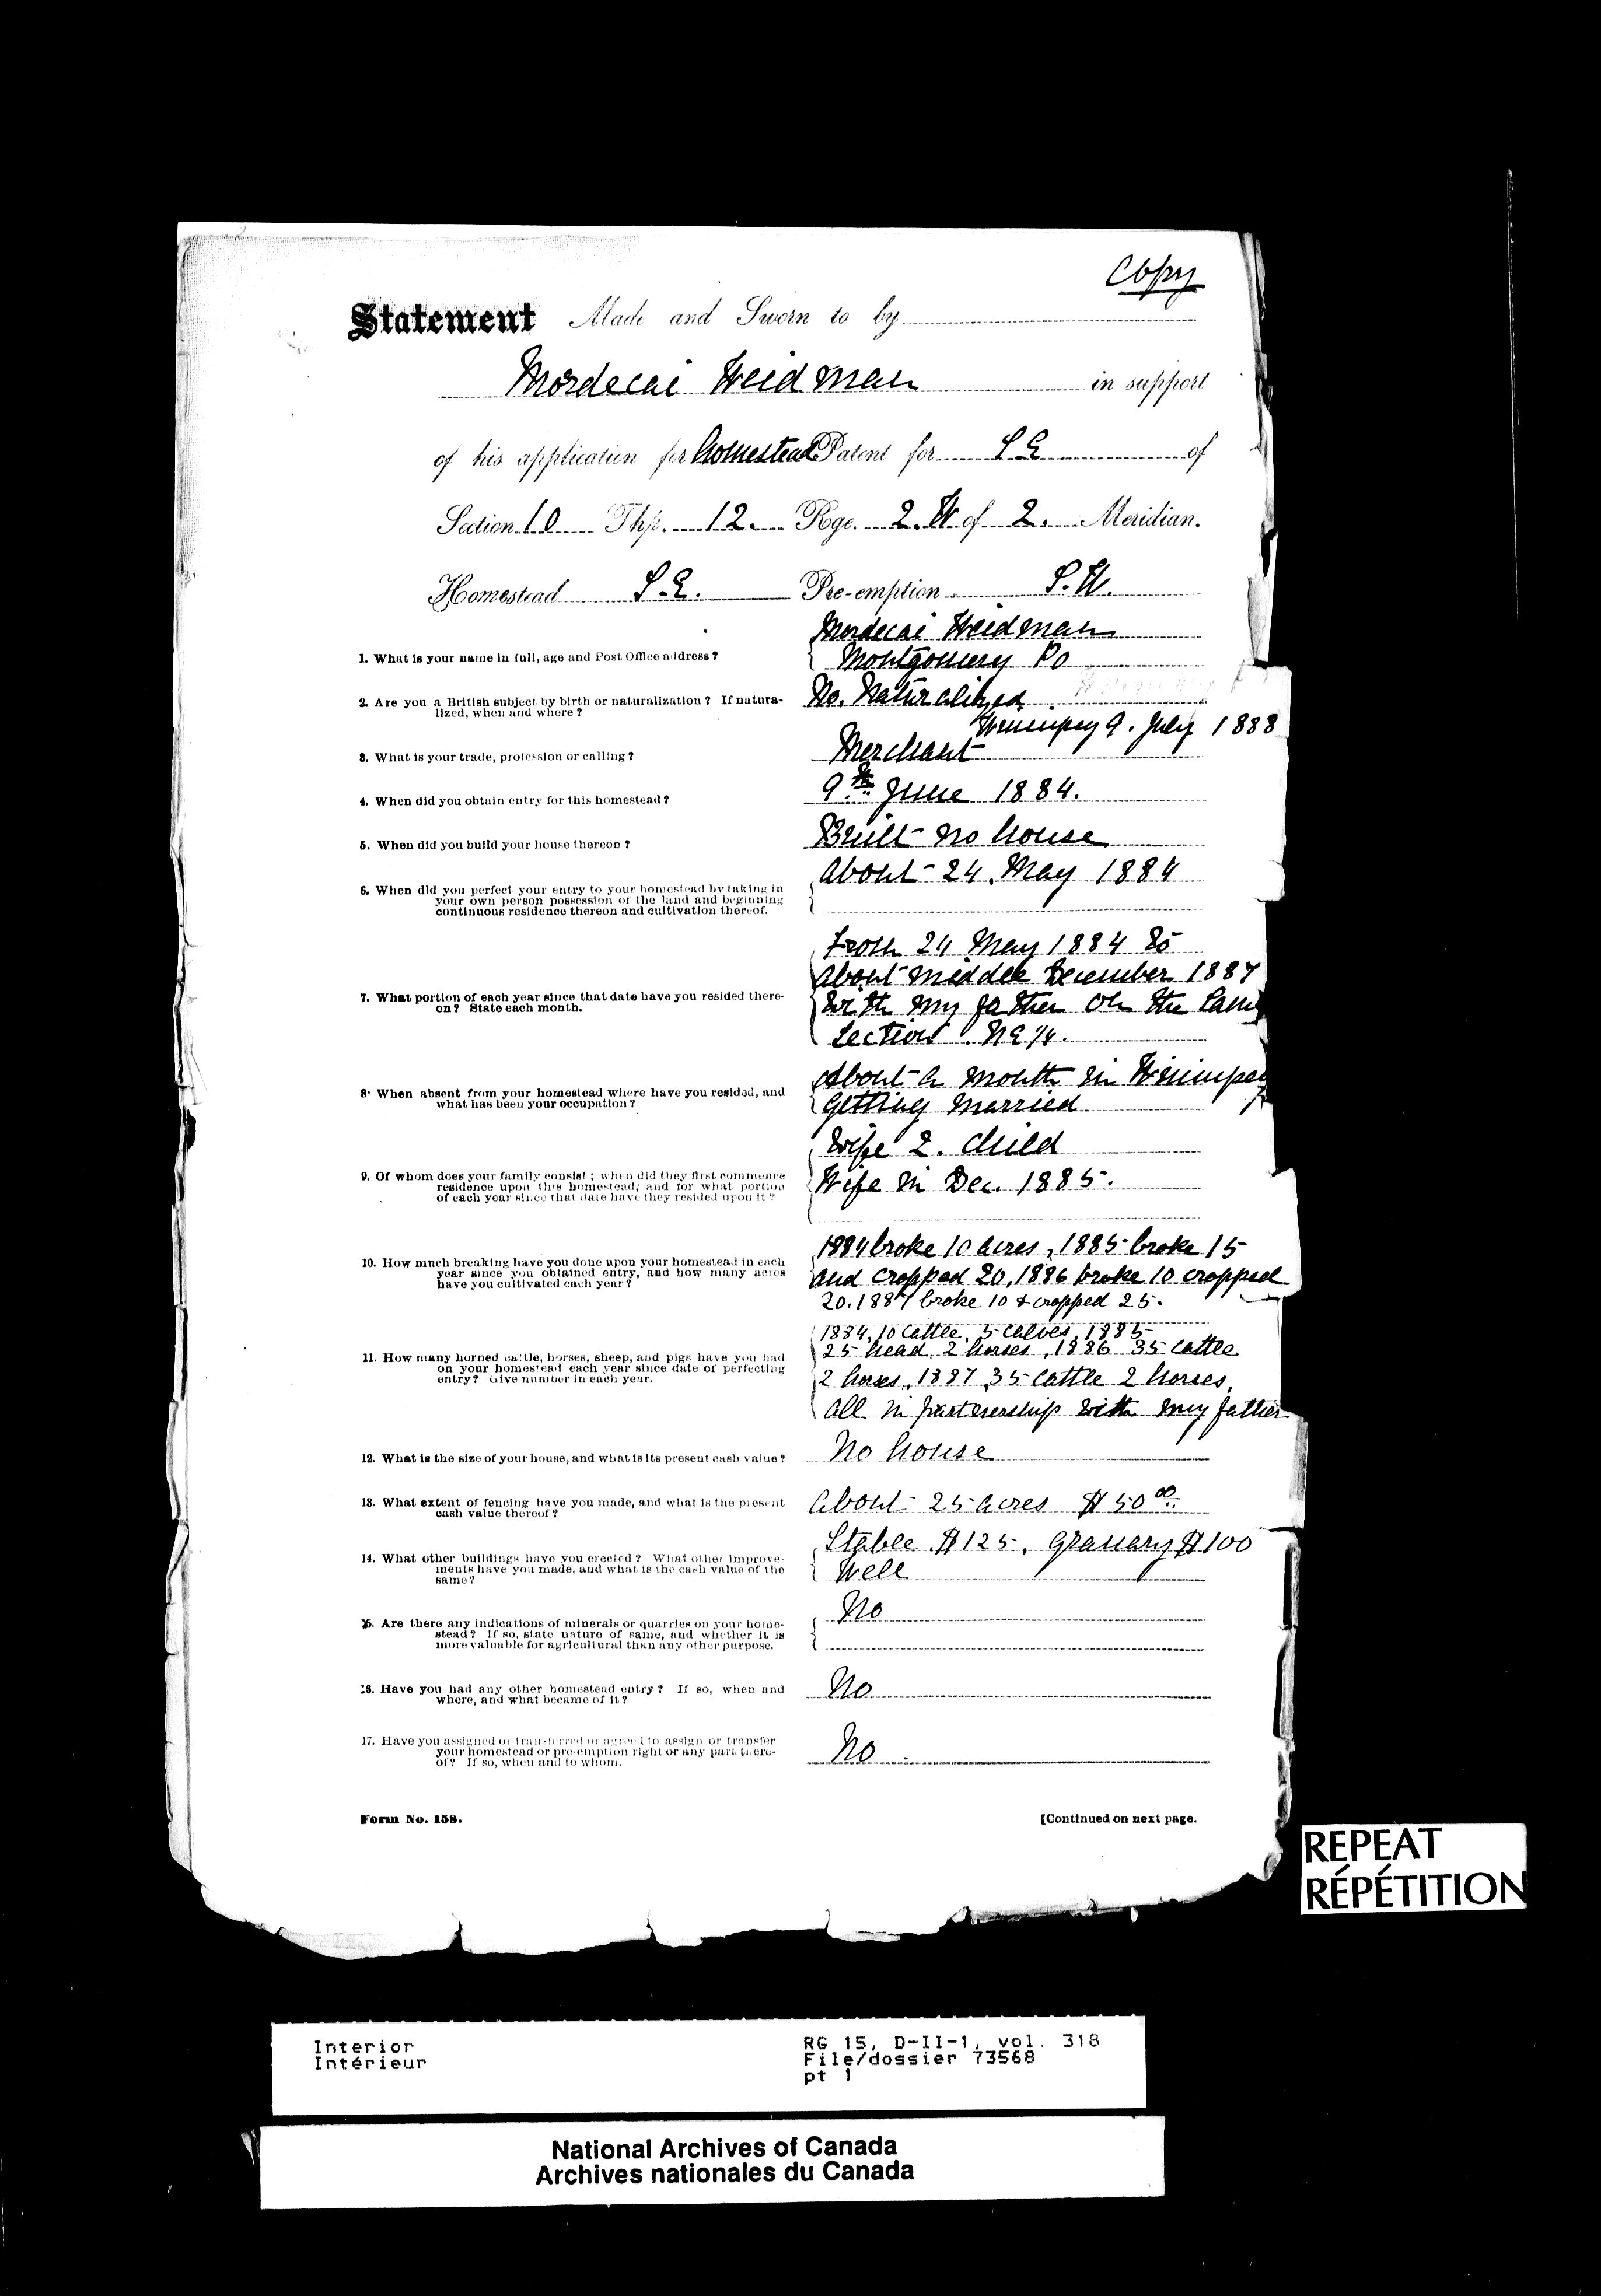 Copy
Statement Made and Sworn to by
Mordecai Weidman in support
of his application for Homestead Patent for S E of
Section 10 Thp. 12 Rge. 2 W of 2. Meridian.
Homestead S.E. Pre-emption S.W.
Mordecai Weidman
1. What is your name in full, age and Post Office address? Montgomery Po
2. Are you a British subject by birth or naturalization? If natura- No. Naturalized
lized, when and where? Winnipeg 9. July 1888
3. What is your trade, profession or calling? Merchant
4. When did you obtain entry for this homestead? 9th June 1884.
5. When did you build your house thereon? Built no house
About 24 May 1884
6. When did you perfect your entry to your homestead by taking in
your own person possession of the land and beginning
continuous residence thereon and cultivation thereof.
From 24 May 1884 to
about middle December 1887
7. What portion of each year since that date have you resided there- With my father on the same
on? State each month.
Section N E 1/4.
About a month in Winnipeg
8. When absent from your homestead where have you resided, and
what has been your occupation? getting married
Wife 2. child
9. Of whom does your family consist; when did they first commence Wife in Dec. 1885.
residence upon this homestead; and for what portion
of each year since that date have they resided upon it?
1884 broke 10 acres, 1885 broke 15
10. How much breaking have you done upon your homestead in each
year since you obtained entry, and how many acres and cropped 20, 1886 broke 10 cropped
have you cultivated each year?
20. 1887 broke 10 & cropped 25.
1884, 10 cattle, 5 calves, 1885
11. How many horned cattle, horses, sheep, and pigs have you had 25 head, 2 horses, 1886 35 cattle.
on your homestead each year since date of perfecting
entry? Give number in each year. 2 horses, 1887 35 cattle 2 horses,
all in partnership with my father
12. What is the size of your house, and what is its present cash value? No house
13. What extent of fencing have you made, and what is the present About 25 acres $50 00
cash value thereof?
Stable $125, granary $100
14. What other buildings have you erected? What other improve-
ments have you made, and what is the cash value of the Well
same?
15. Are there any indications of minerals or quarries on your home- No
stead? If so, state nature of same, and whether it is
more valuable for agricultural than any other purpose.
16. Have you had any other homestead entry? If so, when and No
where, and what became of it?
17. Have you assigned or transferred or agreed to assign or transfer
your homestead or pre-emption right or any part there- No
of? If so, when and to whom.
Form No. 158. [Continued on next page.
REPEAT
RÉPÉTITION
Interior RG 15, D-II-1, vol. 318
Intérieur File/dossier 73568
pt 1
National Archives of Canada
Archives nationales du Canada